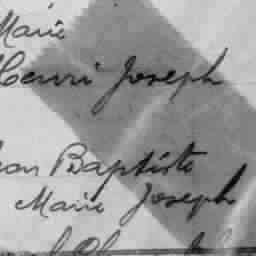 Marie
Henri Joseph
Jean Baptiste
Marie Joseph